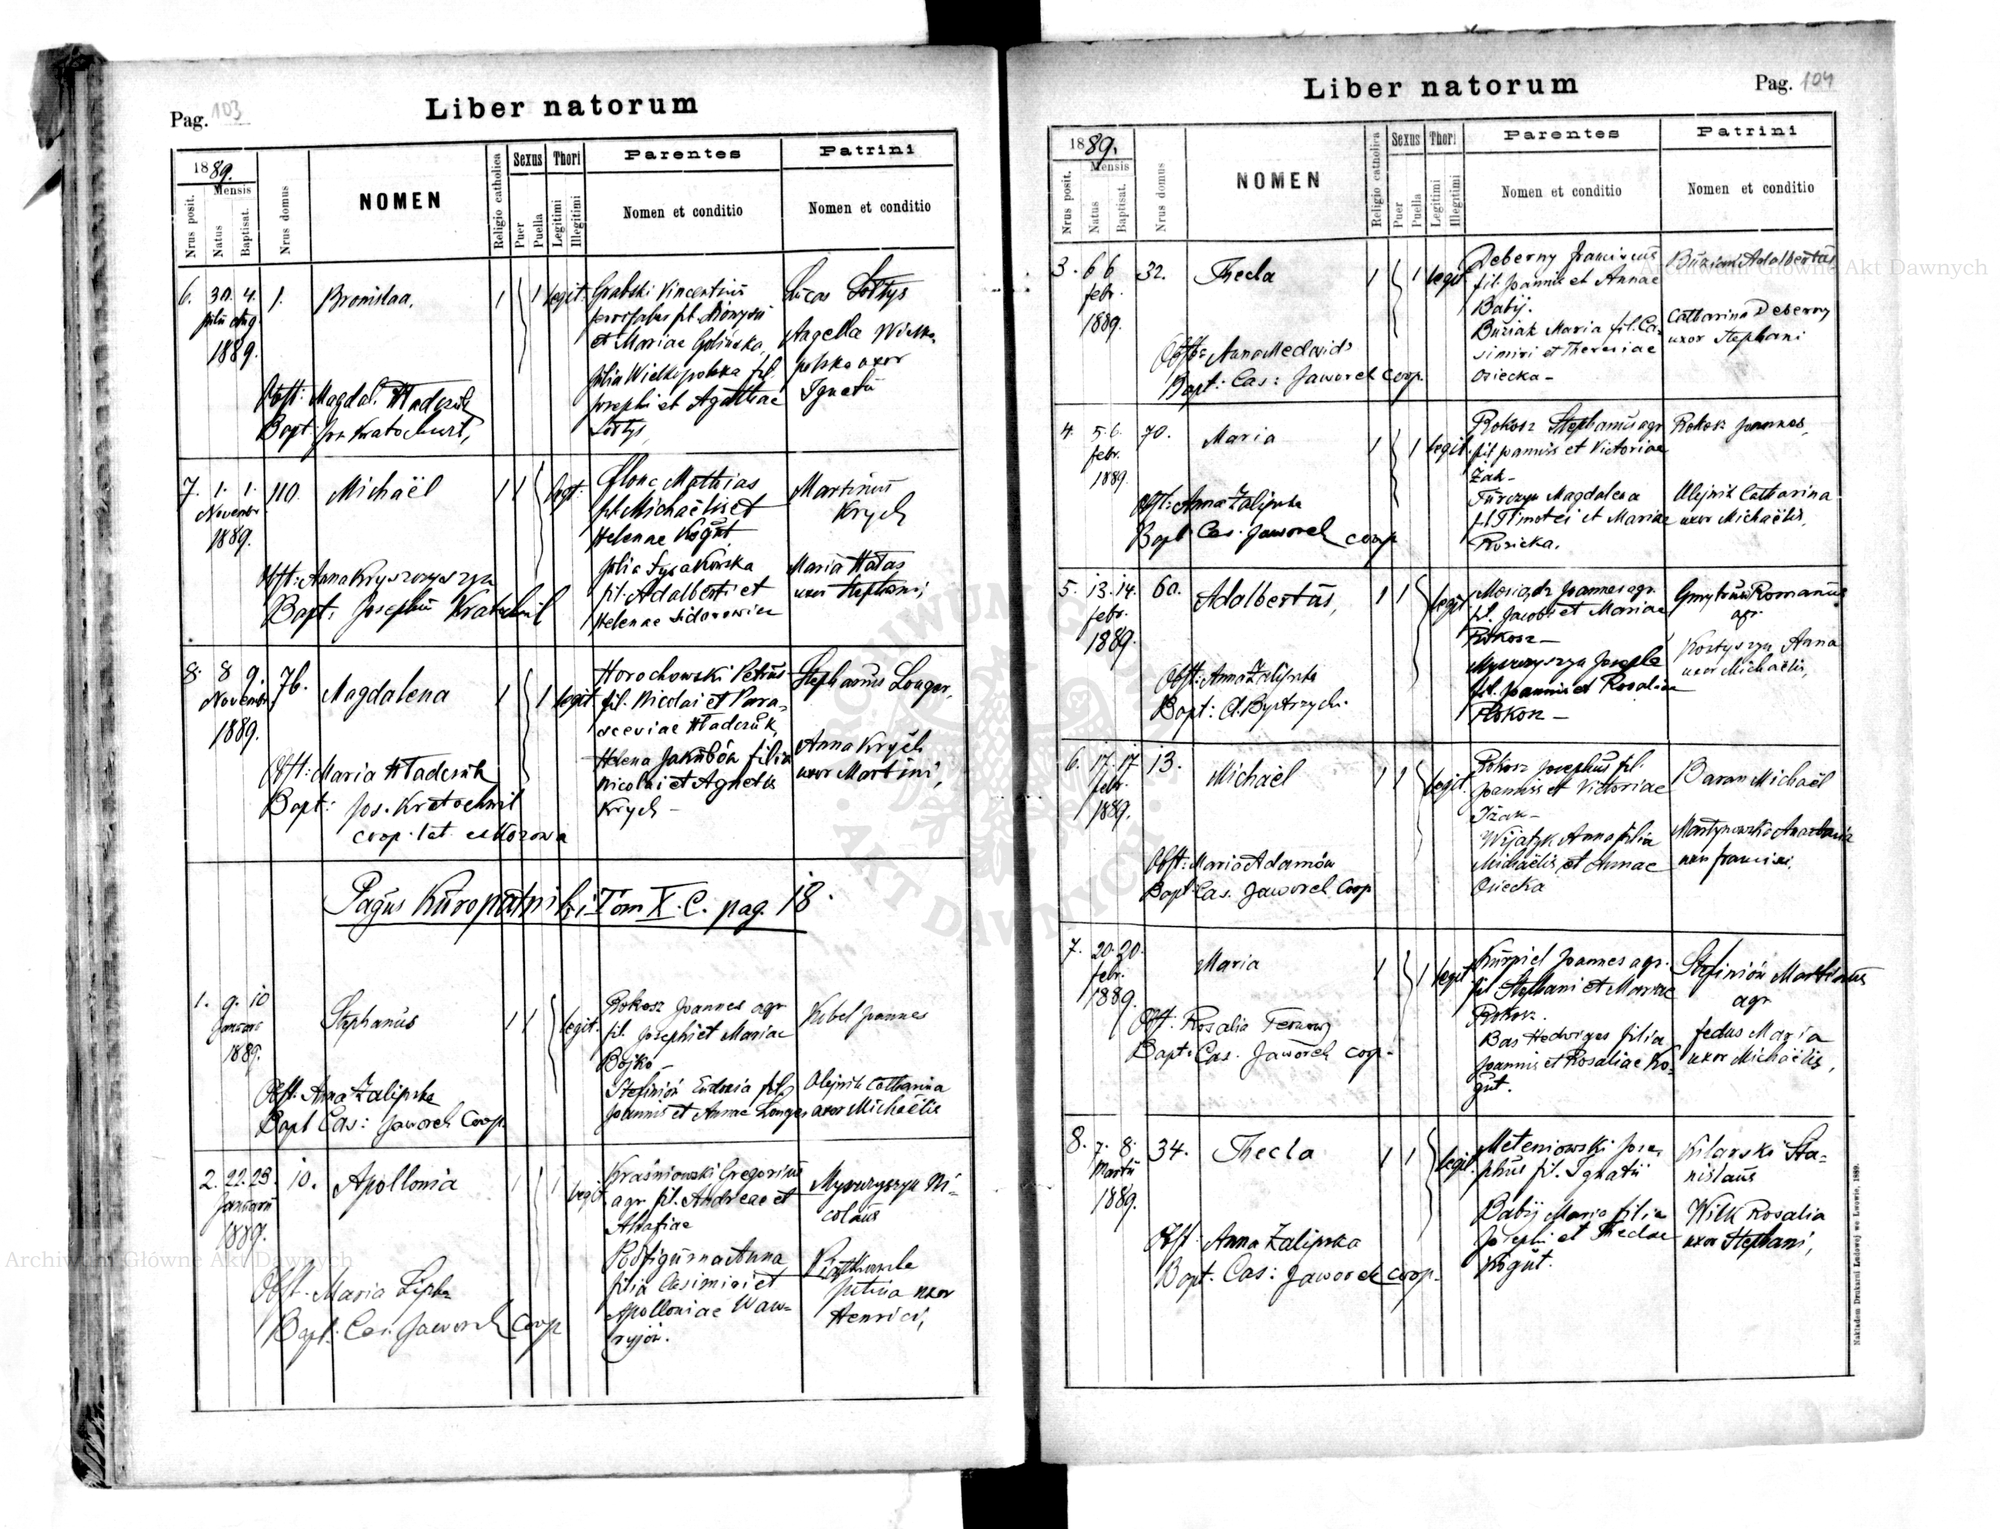 Pag. 103
Liber natorum
1889.
Mensis
Nrus posit.
Natus
Baptisat.
Nrus domus
NOMEN
Religio catholica
Sexus
Puer
Puella
Thori
Legitimi
Illegitimi
Parentes
Nomen et conditio
Patrini
Nomen et conditio
6. 30. 4. 1. Bronislaa, 1 1 legit. Grabski Vincentius Lucas Sołtys
Julii Aug.
1889.
et Mariae
Angella Wielko
Julia Wielkopolska fil polska uxor
Josephi et Agathae Ignatii
Sołtys,
Obst: Magdal. Hładczuk
Bapt Jos Kratochwil,
7. 1. 1. 110. Michaël 1 1 legt. Mathias Martinus
Novembr fil Michaëlis et Krych
1889. Helenae Kogut
Julia Maria Hałas
fil. Adalberti et uxor Stephani,
Helenae Sidorowicz
Obst: Anna
Bapt: Josephus Kratochwil
8. 8 9. 76. Magdalena 1 1 legit Horochowski Petrus Stephanus Longer,
Novembr fil. Nicolai et Para-
1889. sceviae Hładczuk,
Helena Jakubów filia Anna Krych
Nicolai et Agnetis uxor Martini,
Krych -
Obst: Maria Hładczuk
Bapt: Jos. Kratochwil
coop. lat.
Pagus Kuropatniki Tom X. C. pag. 18.
1. 9. 10 Stephanus 1 1 legit. Rokosz Joannes agr Kubel Joannes
Januar fil. Josephi et Mariae
1889. Bojko -
Stefiniów Eudoxia fil. Olejnik Catharina
Joannis et Annae Longer uxor Michaëlis
Obst: Anna Zalipska
Bapt Cas: Jaworek Coop.
2. 22. 23. 10. Apollonia 1 1 legit Kraśniowski Gregorius Myszczyszyn Ni-
Januarii agr fil. Andreae et colaus
1889.
Podfigurna Anna
filia Casimiri et Justina uxor
Apolloniae Waw- Henrici,
ryjów.
Obst. Maria Lipka
Bapt: Cas. Jaworek Coop
Liber natorum
Pag. 104
1889.
Mensis
Nrus posit.
Natus
Baptisat.
Nrus domus
NOMEN
Religio catholica
Sexus
Puer
Puella
Thori
Legitimi
Illegitimi
Parentes
Nomen et conditio
Patrini
Nomen et conditio
3. 6 6 32. Thecla 1 1 legit Deberny Franciscus Buziak Adalbertus
febr. fil. Joannis et Annae
1889. Babij.
Buziak Maria fil. Ca- Catharina Deberny
simiri et Theresiae uxor Stephani
Osiecka -
Obst: Anna Medwids
Bapt: Cas: Jaworek coop.
4. 5. 6. 70. Maria 1 1 legit Rokosz Stephanus agr Rokosz Joannes,
febr. fil Joannis et Victoriae
1889. Żak -
Turczyn Magdalena Olejnik Catharina
fil Timotei et Mariae uxor Michaëlis,
Kosicka.
Obst: Anna Zalipska
Bapt Cas. Jaworek coop
5. 13. 14. 60. Adalbertus, 1 1 legit Mesiądz Joannes agr. Gmytruw Romanus
febr. fil. Jacobi et Mariae agr
1889. Rokosz -
Myszczyszyn Josepha Kostyszyn Anna
fil. Joannis et Rosaliae uxor Michaëlis,
Rokosz -
Obst: Anna Zalipska
Bapt: A. Bystrzycki.
6. 17. 17 13. Michael 1 1 legit. Rokosz Josephus fil. Baran Michaël
febr. Joannis et Victoriae
1889. Żak -
Wijatyk Anna filia Martynowska Anastasia
Michaëlis et Annae uxor Francisci
Osiecka
Obst: Maria Adamów
Bapt: Cas. Jaworek Coop
7. 20. 20. Maria 1 1 legit Kurpiel Joannes agr. Stefiniów Martinus
febr. fil Stephani et Mariae agr
1889. Rokosz.
Bas Hedwiges filia fedus Maria
Joannis et Rosaliae Ko- uxor Michaëlis,
gut.
Obst: Rosalia Ternowy
Bapt: Cas. Jaworek coop -
8. 7. 8. 34. Thecla 1 1 legit. Meteniowski Jose- Kilarski Sta-
Martii phus fil. Ignatii nislaus
1889.
Babij Maria filia Wilk Rosalia
Josephi et Theclae uxor Stephani,
Kogut.
Obst: Anna Zalipska
Bapt. Cas: Jaworek coop.
Nakładem Drukarni Ludowej we Lwowie, 1889.
Archiwum Główne Akt Dawnych
Archiwum Główne Akt Dawnych
ARCHIWUM GŁÓWNE
AKT DAWNYCH